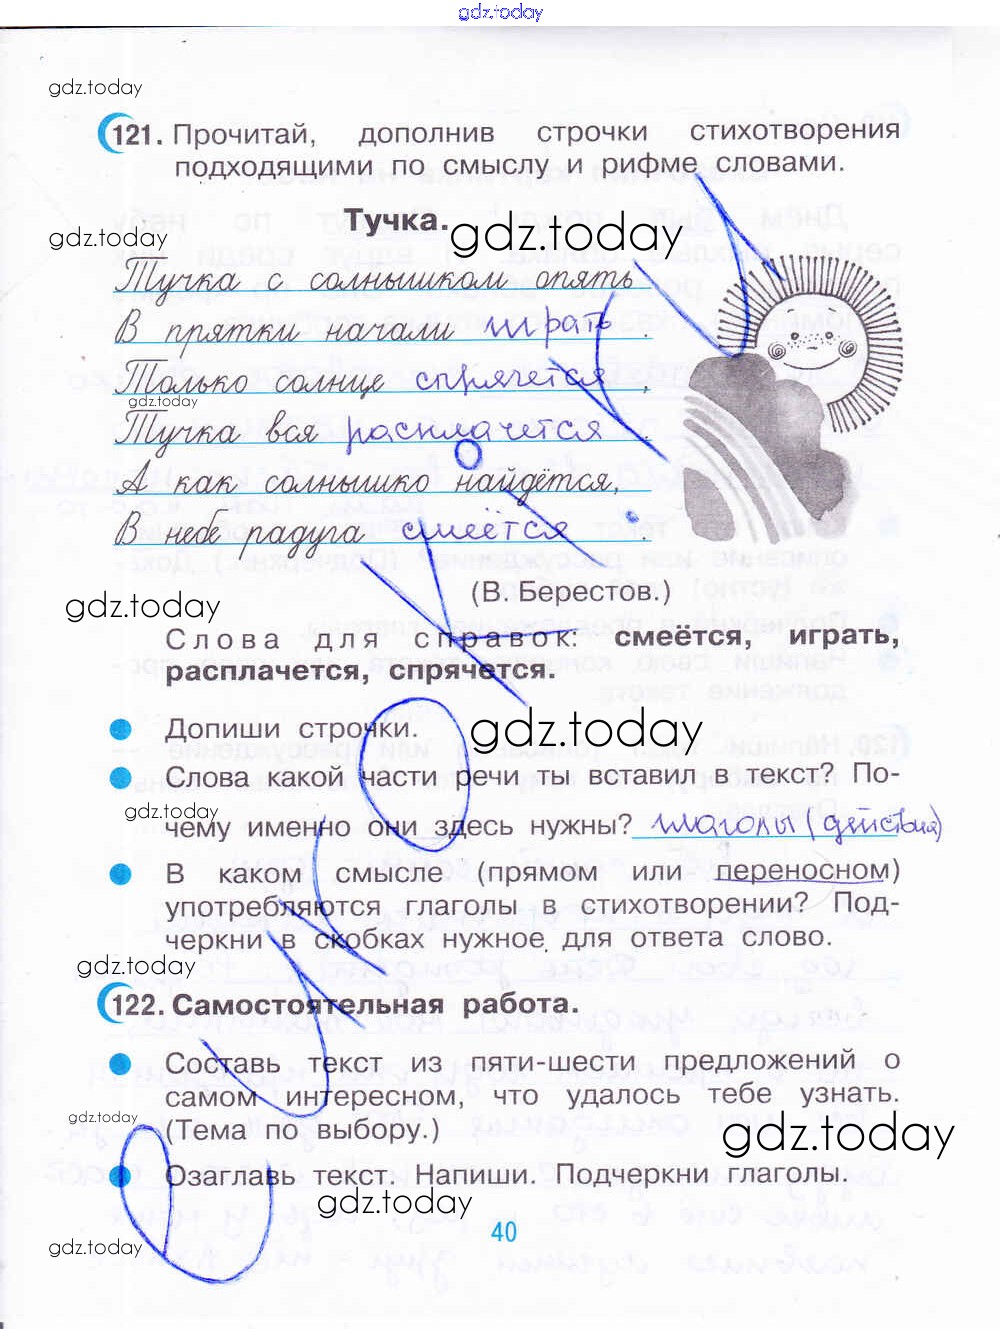 gdz.today
gdz.today
121. Прочитай, дополнив строчки стихотворения
подходящими по смыслу и рифме словами.
Тучка.
gdz.today
gdz.today
Тучка с солнышком опять
В прятки начали играть.
Только солнце спрячется,
gdz.today
Тучка вся расплачется.
А как солнышко найдётся,
В небе радуга смеётся.
(В. Берестов.)
gdz.today
Слова для справок: смеётся, играть,
расплачется, спрячется.
Допиши строчки.
gdz.today
Слова какой части речи ты вставил в текст? По-
gdz.today
чему именно они здесь нужны? глаголы (действия)
В каком смысле (прямом или переносном)
употребляются глаголы в стихотворении? Под-
черкни в скобках нужное для ответа слово.
gdz.today
122. Самостоятельная работа.
Составь текст из пяти-шести предложений о
самом интересном, что удалось тебе узнать.
gdz.today
(Тема по выбору.)
gdz.today
Озаглавь текст. Напиши. Подчеркни глаголы.
gdz.today
40
gdz.today